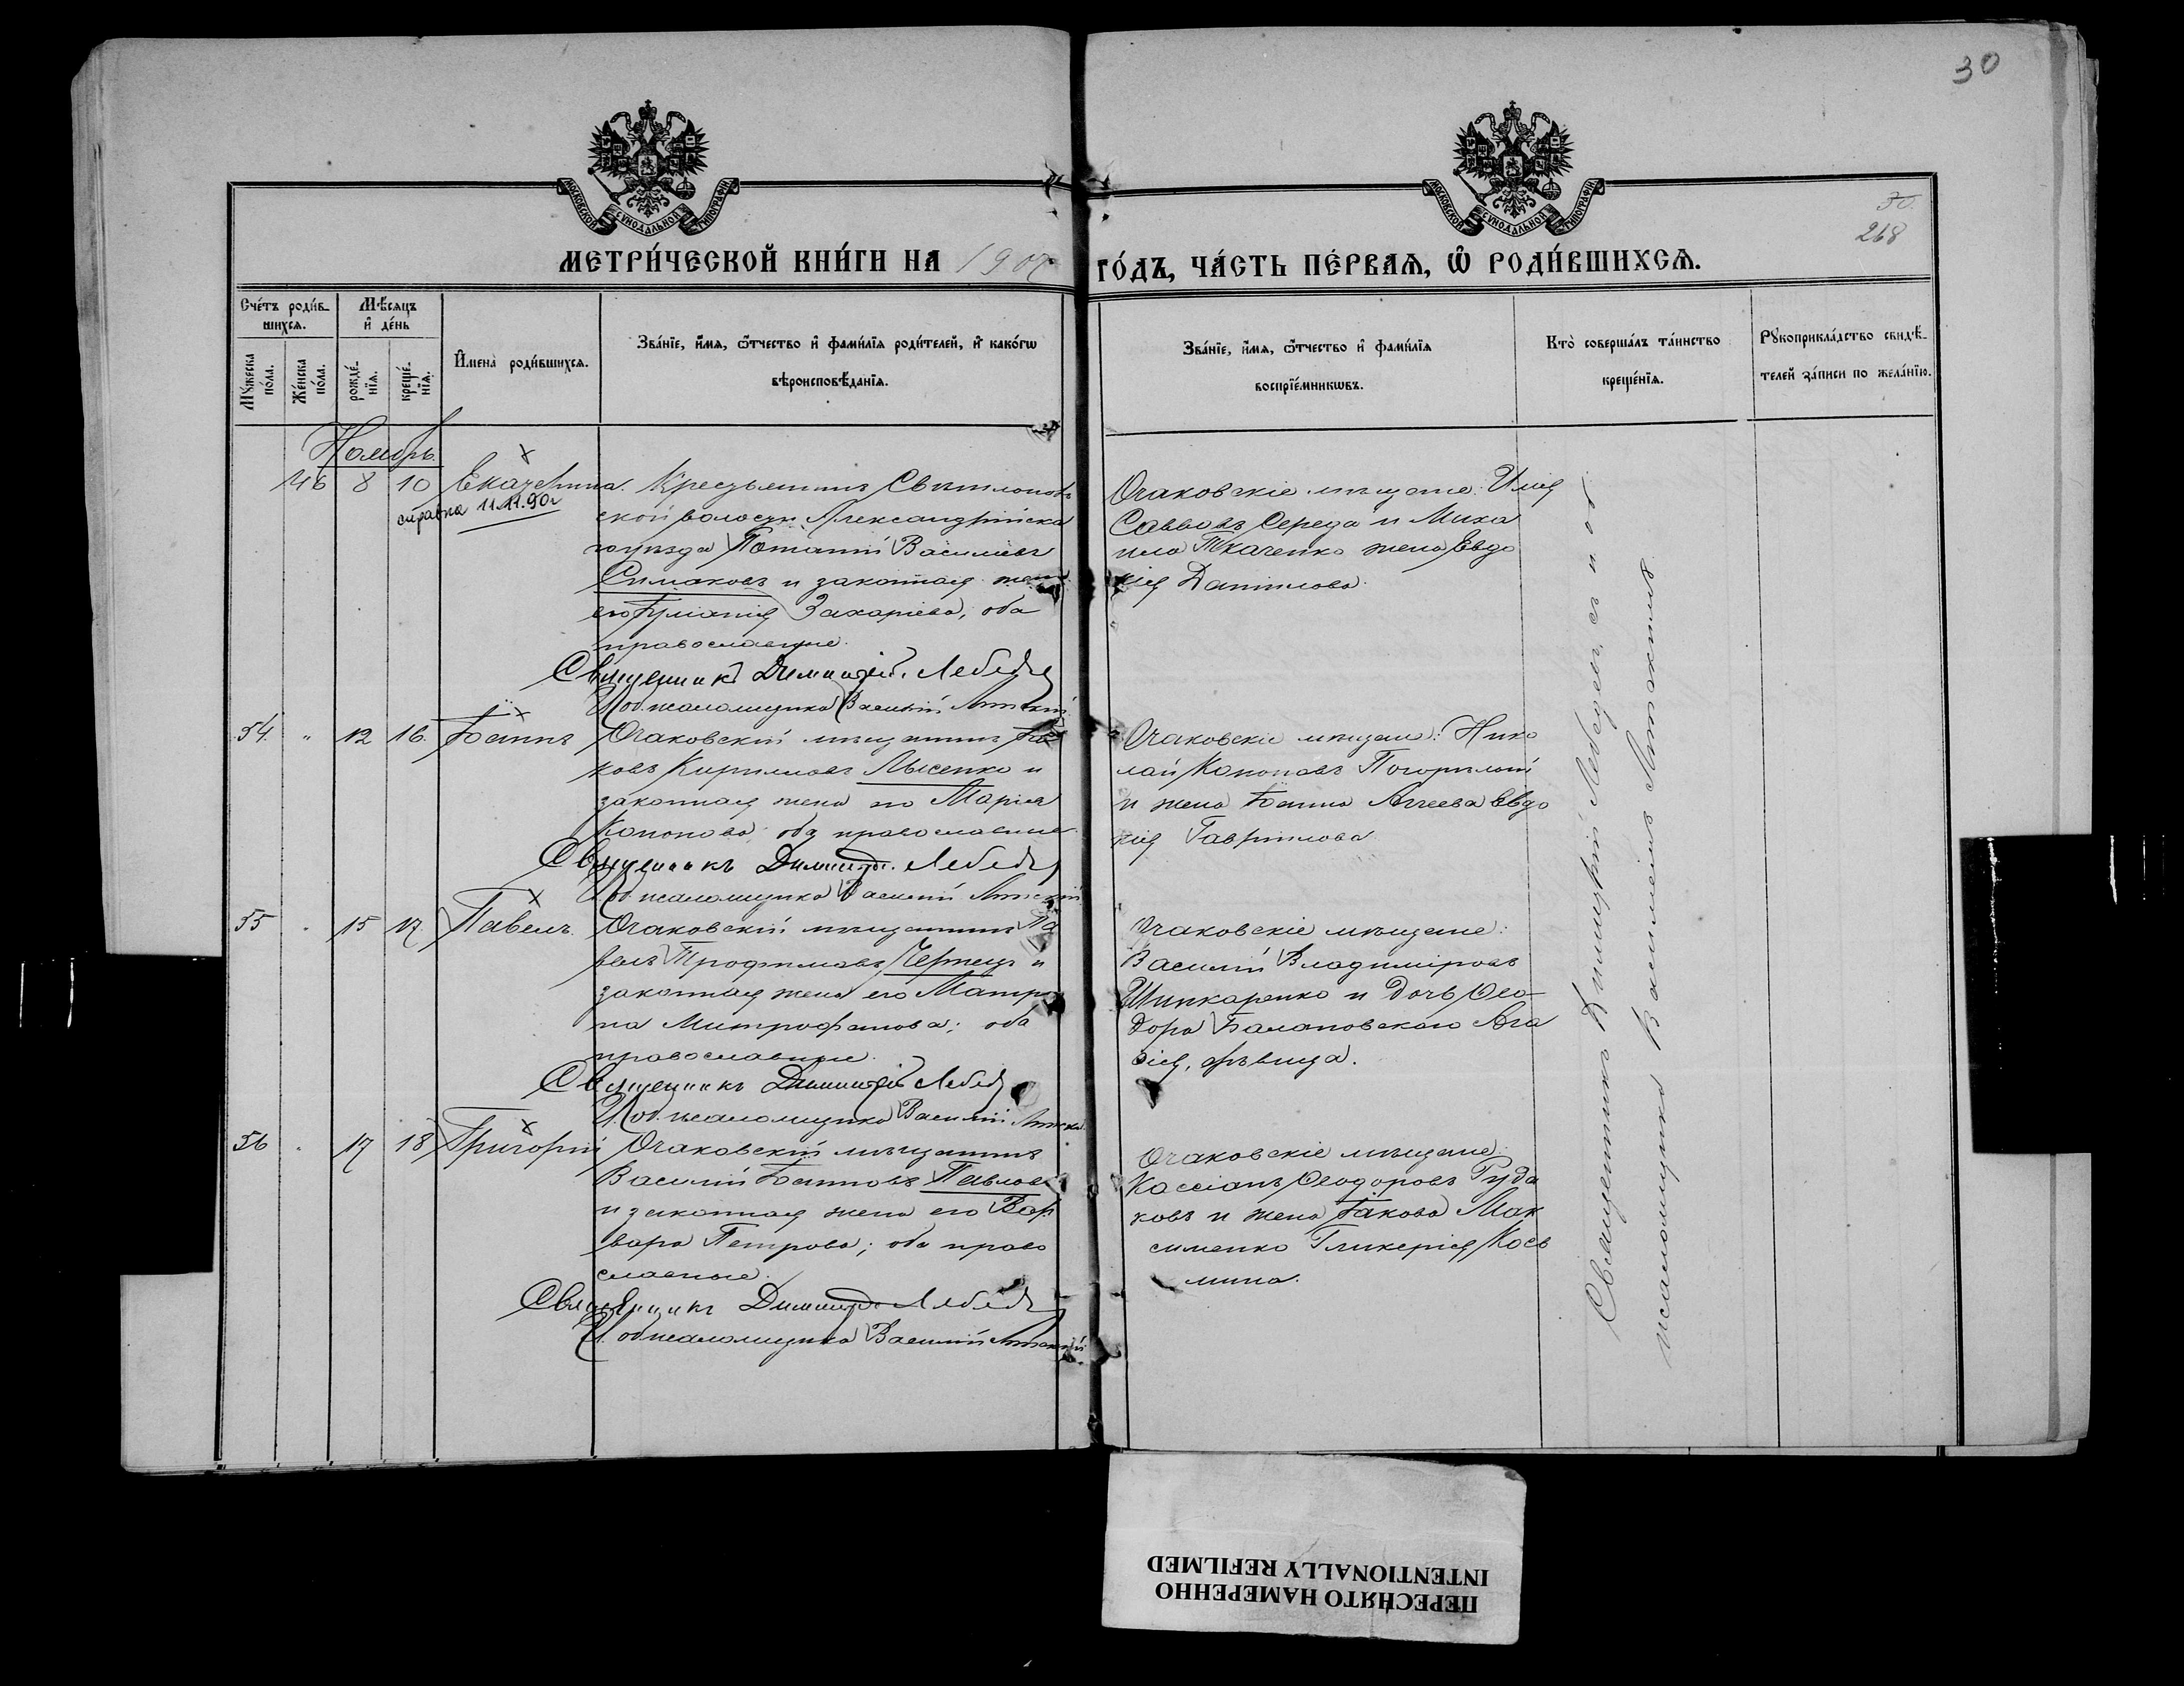 30
30.
268
МОСКОВСКОЙ СѴНОДАЛЬНОЙ ТИПОГРАФІИ
МОСКОВСКОЙ СѴНОДАЛЬНОЙ ТИПОГРАФІИ
МЕТРИ́ЧЕСКОЙ КНИ́ГИ НА 1907 ГО́ДЪ, ЧА́СТЬ ПЕ́РВАѦ, Ѽ РОДИ́ВШИХСѦ.
Сче́тъ роди́в-
шихсѧ.
Мꙋ́жеска по́ла.
Же́нска по́ла.
Мѣ́сяцъ
и҆ де́нь
рожде́-нїѧ.
креще́-нїѧ.
И҆мена̀ роди́вшихсѧ.
Зва́нїе, и҆́мѧ, ѻ҆́тчество и҆ фами́лїѧ роди́телей, и҆ како́гѡ
вѣроисповѣ́данїѧ.
Зва́нїе, и҆́мѧ, ѻ҆́тчество и҆ фами́лїѧ
воспрїе́мникѡвъ.
Кто̀ соверша́лъ та́инство
креще́нїѧ.
Рꙋкоприкла́дство свидѣ́-
телей за́писи по жела́нїю.
Ноябрь.
46 8 10 Екатерина.
справка 11.11.90
Крестьянинъ
ской волости Александрійска
го уѣзда Потапій Васильевъ
Симаковъ и законная жена
его Іуліанія Захаріева, оба
православные.
Священникъ Димитрій Лебедев
И. об. псаломщика Василій
Очаковскіе мѣщане: Илія
Саввовъ Середа и Миха
ила Ткаченко жена Евдо
кія Данилова.
54 " 12 16 Іоаннъ
Очаковскій мѣщанинъ Іа
ковъ Кирилловъ Лысенко и
законная жена его Марія
Кононова; оба православные.
Священникъ Димитрій Лебедев
И. об. псаломщика Василій
Очаковскіе мѣщане: Нико
лай Кононовъ Погорѣлый
и жена Іоанна Аггеева Евдо
кія Гавриилова
55 " 15 17 Павелъ.
Очаковскій мѣщанинъ Па
велъ Трофимовъ Чернецъ и
законная жена его Матро
на Митрофанова; оба
православные.
Священникъ Димитрій Лебедев
И. об. псаломщика Василій
Очаковскіе мѣщане:
Василій Владиміровъ
Шинкаренко и дочь Ѳео-
дора Балановскаго Ага
ѳія, дѣвица.
56 " 17 18 Григорій
Очаковскій мѣщанинъ
Василій Іоанновъ Павлов
и законная жена его Вар
вара Петрова; оба право
славные.
Священникъ Димитрій Лебедев
И. об. псаломщика Василій
Очаковскіе мѣщане:
Кассіанъ Ѳеодоровъ Руда
ковъ и жена Іакова Мак
сименко Гликерія Кось
мина.
Священникъ Димитрій Лебедевъ съ и. об.
псаломщика Василіемъ
ПЕРЕСНЯТО НАМЕРЕННО
INTENTIONALLY REFILMED